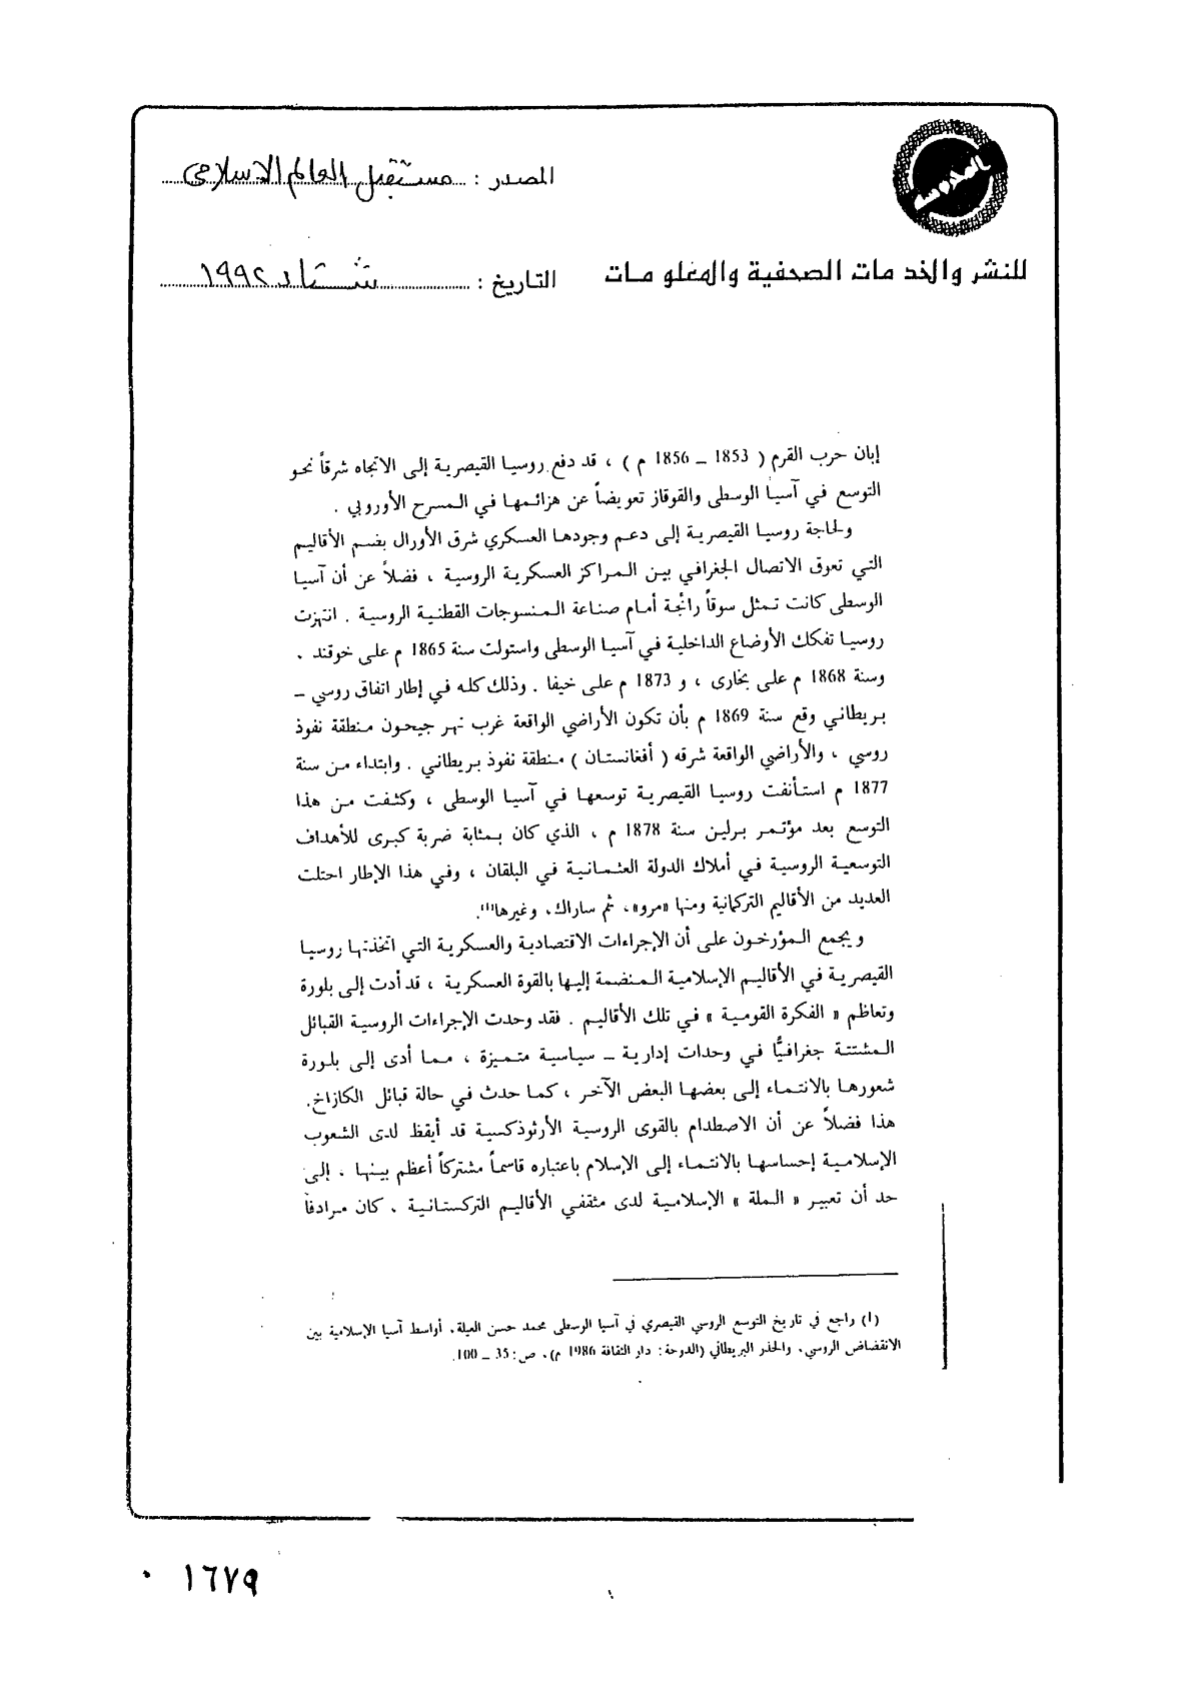 المصدر : مستقبل العالم الاسلامى
للنشر والخدمات الصحفية والمعلومات
التاريخ : شتاء ١٩٩٢
إبان حرب القرم ( 1853 – 1856 م ) ، قد دفع روسيا القيصرية إلى الاتجاه شرقاً نحو
التوسع في آسيا الوسطى والقوقاز تعويضاً عن هزائمها في المسرح الأوروبي .
ولحاجة روسيا القيصرية إلى دعم وجودها العسكري شرق الأورال بضم الأقاليم
التي تعوق الاتصال الجغرافي بين المراكز العسكرية الروسية ، فضلاً عن أن آسيا
الوسطى كانت تمثل سوقاً رائجة أمام صناعة المنسوجات القطنية الروسية . انتهزت
روسيا تفكك الأوضاع الداخلية في آسيا الوسطى واستولت سنة 1865 م على خوقند ،
وسنة 1868 م على بخارى ، و 1873 م على خيفا . وذلك كله في إطار اتفاق روسي –
بريطاني وقع سنة 1869 م بأن تكون الأراضي الواقعة غرب نهر جيحون منطقة نفوذ
روسي ، والأراضي الواقعة شرقه ( أفغانستان ) منطقة نفوذ بريطاني . وابتداء من سنة
1877 م استأنفت روسيا القيصرية توسعها في آسيا الوسطى ، وكثفت من هذا
التوسع بعد مؤتمر برلين سنة 1878 م ، الذي كان بمثابة ضربة كبرى للأهداف
التوسعية الروسية في أملاك الدولة العثمانية في البلقان ، وفي هذا الإطار احتلت
العديد من الأقاليم التركمانية ومنها «مرو»، ثم ساراك، وغيرها(1).
ويجمع المؤرخون على أن الإجراءات الاقتصادية والعسكرية التي اتخذتها روسيا
القيصرية في الأقاليم الإسلامية المنضمة إليها بالقوة العسكرية ، قد أدت إلى بلورة
وتعاظم « الفكرة القومية » في تلك الأقاليم . فقد وحدت الإجراءات الروسية القبائل
المشتتة جغرافيًّا في وحدات إدارية – سياسية متميزة ، مما أدى إلى بلورة
شعورها بالانتماء إلى بعضها البعض الآخر ، كما حدث في حالة قبائل الكازاخ.
هذا فضلاً عن أن الاصطدام بالقوى الروسية الأرثوذكسية قد أيقظ لدى الشعوب
الإسلامية إحساسها بالانتماء إلى الإسلام باعتباره قاسماً مشتركاً أعظم بينها ، إلى
حد أن تعبير « الملة » الإسلامية لدى مثقفي الأقاليم التركستانية ، كان مرادفاً
(1) راجع في تاريخ التوسع الروسي القيصري في آسيا الوسطى محمد حسن العيلة، أواسط آسيا الإسلامية بين
الانقضاض الروسي، والحذر البريطاني (الدوحة: دار الثقافة 1986 م)، ص: 35 – 100.
١٦٧٩